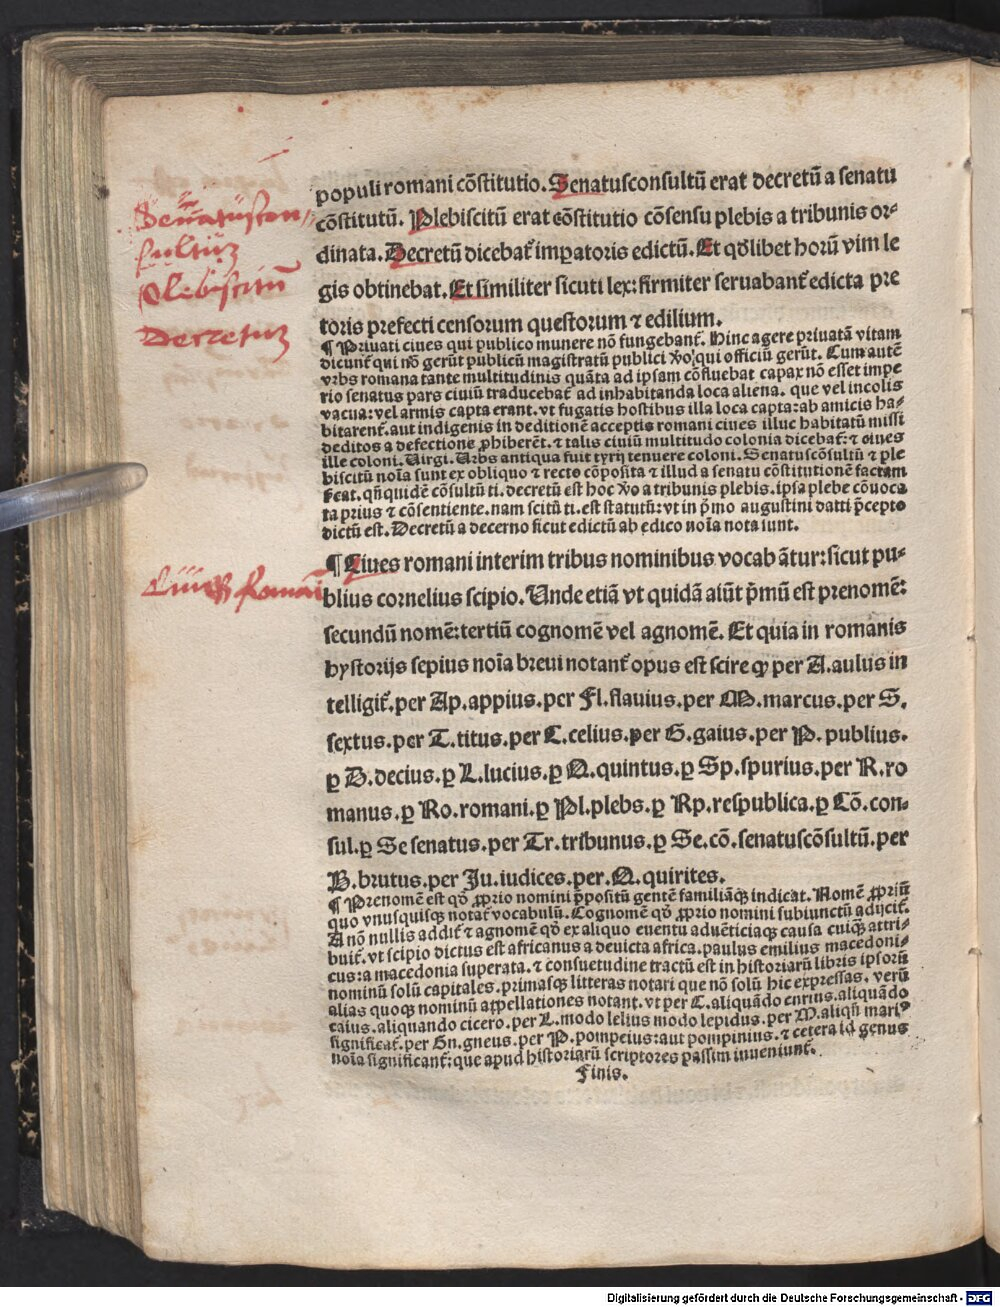 populi romani cōstitutio. Senatusconsultū erat decretū a senatu
cōstitutū. Plebiscitū erat cōstitutio cōsensu plebis a tribunis or-
dinata. Decretū dicebat᷑ imꝑatoris edictū. Et qd̄libet horū vim le
gis obtinebat. Et similiter sicuti lex: firmiter seruabant᷑ edicta pre
toris prefecti censorum questorum ⁊ edilium.
¶ Priuati ciues qui publico munere nō fungebant᷑. Hinc agere priuatā vitam
dicunt᷑ qui nō gerūt publicū magistratū publici v̄o qui officiū gerūt. Cum autē
vrbs romana tante multitudinis quāta ad ipsam cōfluebat capax nō esset impe
rio senatus pars ciuiū traducebat᷑ ad inhabitanda loca aliena. que vel incolis
vacua: vel armis capta erant. vt fugatis hostibus illa loca capta: ab amicis ha-
bitarent᷑. aut indigenis in deditionē acceptis romani ciues illuc habitatū missi
deditos a defectione ꝓhiberēt. ⁊ talis ciuiū multitudo colonia dicebat᷑: ⁊ ciues
ille coloni. Virgi. Vrbs antiqua fuit tyrij tenuere coloni. Senatuscōsultū ⁊ ple
biscitū noīa sunt ex obliquo ⁊ recto cōposita ⁊ illud a senatu cōstitutionē factam
qn̄quidē cōsultū ti. decretū est hoc v̄o a tribunis plebis. ipsa plebe cōuoca
ta prius ⁊ cōsentiente. nam scitū ti. est statutū: vt in p̄mo augustini datti p̄cepto
dictū est. Decretū a decerno sicut edictū ab edico noīa nota sunt.
¶ Ciues romani interim tribus nominibus vocabātur: sicut pu-
blius cornelius scipio. Unde etiā vt quidā aiūt p̄mū est prenomē:
secundū nomē: tertiū cognomē vel agnomē. Et quia in romanis
hystorijs sepius noīa breui notant᷑ opus est scire ꝙ per A. aulus in
telligit᷑. per Ap. appius. per Fl. flauius. per M. marcus. per S.
sextus. per T. titus. per C. celius. per G. gaius. per P. publius.
ꝑ D. decius. ꝑ L. lucius. ꝑ Q. quintus. ꝑ Sp. spurius. per R. ro
manus. ꝑ Ro. romani. ꝑ Pl. plebs. ꝑ Rp. respublica. ꝑ Cō. con-
sul. ꝑ Se senatus. per Tr. tribunus. ꝑ Se. cō. senatuscōsultū. per
B. brutus. per Ju. iudices. per. Q. quirites.
¶ Prenomē est qd̄ ꝓprio nomini p̄positū gentē familiāqꝫ indicat. Nomē ꝓpriū
quo vnusquisqꝫ notat᷑ vocabulū. Cognomē qd̄ ꝓprio nomini subiunctū adijcit᷑.
A nō nullis addit᷑ ⁊ agnomē qd̄ ex aliquo euentu aduēticiaqꝫ causa cuiqꝫ attri-
buit᷑. vt scipio dictus est africanus a deuicta africa. paulus emilius macedoni-
cus: a macedonia superata. ⁊ consuetudine tractū est in historiarū libris ipsorū
nominū solū capitales. primasqꝫ litteras notari que nō solū hic expressas. verū
alias quoqꝫ nominū appellationes notant. vt per C. aliquādo curius. aliquādo
caius. aliquando cicero. per L. modo lelius modo lepidus. per M. aliqn̄ mariꝰ
significat᷑. per Gn. gneus. per P. pompeius: aut pompinius. ⁊ cetera id genus
noīa significant᷑: que apud historiarū scriptores passim inueniunt᷑.
Finis.
Senatuscon-
sultum
Plebiscitū
Decretum
Ciues Romani
Digitalisierung gefördert durch die Deutsche Forschungsgemeinschaft - DFG